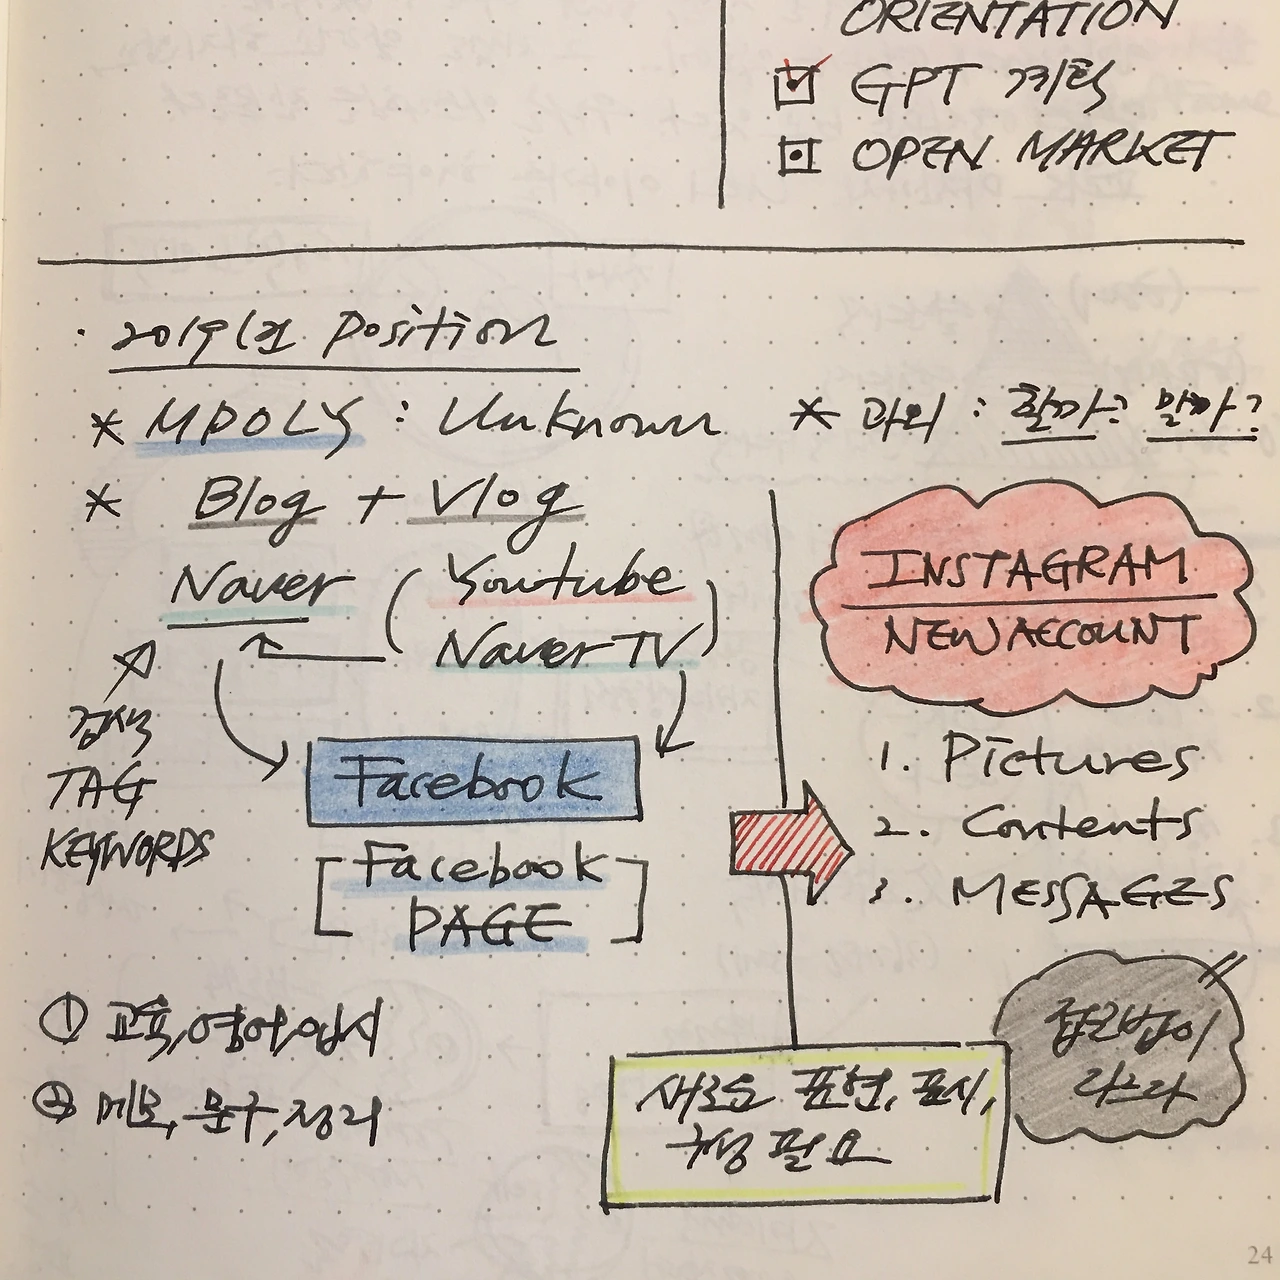 ORIENTATION
GPT 계획
OPEN MARKET
· 2019년 Position
* MPOLY : Unknown
* Blog + Vlog
Naver
(Youtube
Naver TV)
검색
TAG
KEYWORDS
Facebook
[Facebook
PAGE]
① 교육, 영어, 입시
② 메모, 문구, 정리
* 과외 : 할까? 말까?
INSTAGRAM
NEW ACCOUNT
1. Pictures
2. Contents
3. MESSAGES
접근법이
다르다
새로운 표현, 표시,
구성 필요
24